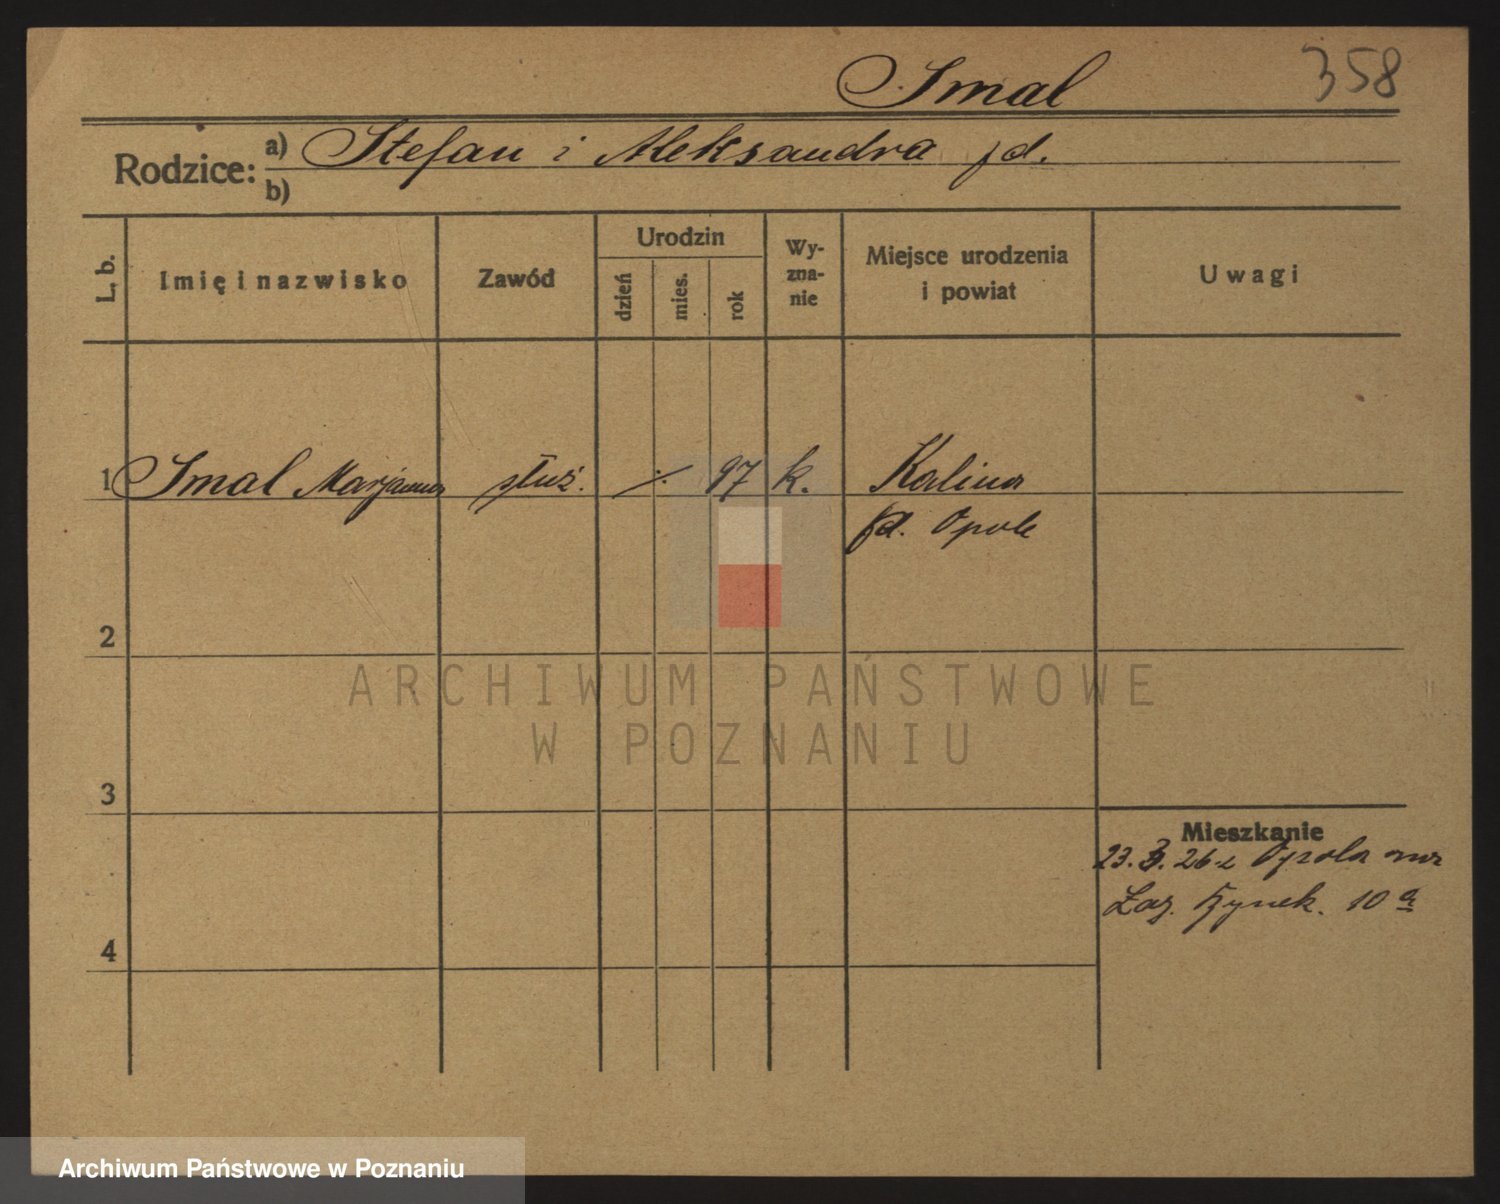 Smal 358
Rodzice: a) Stefan i Aleksandra jd.
b)
L. b. Imię i nazwisko Zawód Urodzin dzień mies. rok Wyznanie Miejsce urodzenia i powiat Uwagi
1 Smal Marjanna służ. ·/. 97 k. Kalina
jd. Opole
2
ARCHIWUM PAŃSTWOWE
W POZNANIU
3
Mieszkanie
23. 3. 26 z Opola na
Łaz. Rynek. 10 a
4
Archiwum Państwowe w Poznaniu